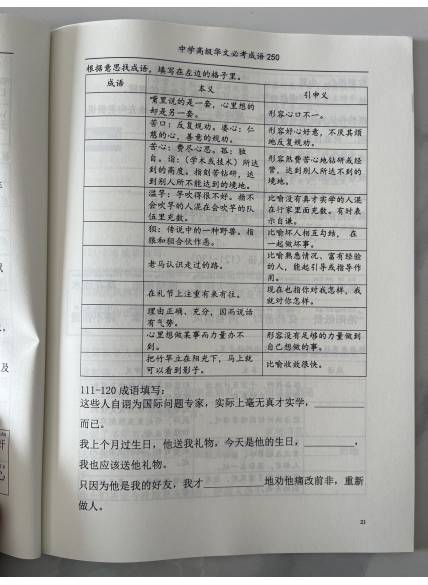 中学高级华文必考成语 250
根据意思找成语，填写在左边的格子里。
成语 本义 引申义
嘴里说的是一套，心里想的
却是另一套。
形容心口不一。
苦口：反复规劝。婆心：仁
慈的心，善意的规劝。
形容好心好意，不厌其烦
地反复规劝。
苦心：费尽心思。孤：独
自。诣：（学术或技术）所达
到的高度。指刻苦钻研，达
到别人所不能达到的境地。
形容煞费苦心地钻研或经
营，达到别人所达不到的
境地。
滥竽：竽吹得很不好。指不
会吹竽的人混在会吹竽的队
伍里充数。
比喻没有真才实学的人混
在行家里面充数。有时表
示自谦。
狈：传说中的一种野兽。指
狼和狈合伙作恶。
比喻坏人相互勾结，在
一起做坏事。
老马认识走过的路。
比喻熟悉情况、富有经验
的人，能起引导或指导作
用。
在礼节上注重有来有往。
现在也指你对我怎样，我
就对你怎样。
理由正确、充分，因而说话
有气势。
心里想做某事而力量办不
到。
形容没有足够的力量做到
自己想做的事。
把竹竿立在阳光下，马上就
可以看到影子。
比喻收效很快。
111-120 成语填写：
这些人自诩为国际问题专家，实际上毫无真才实学，________
而已。
我上个月过生日，他送我礼物，今天是他的生日，________，
我也应该送他礼物。
只因为他是我的好友，我才________地劝他痛改前非，重新
做人。
21
及